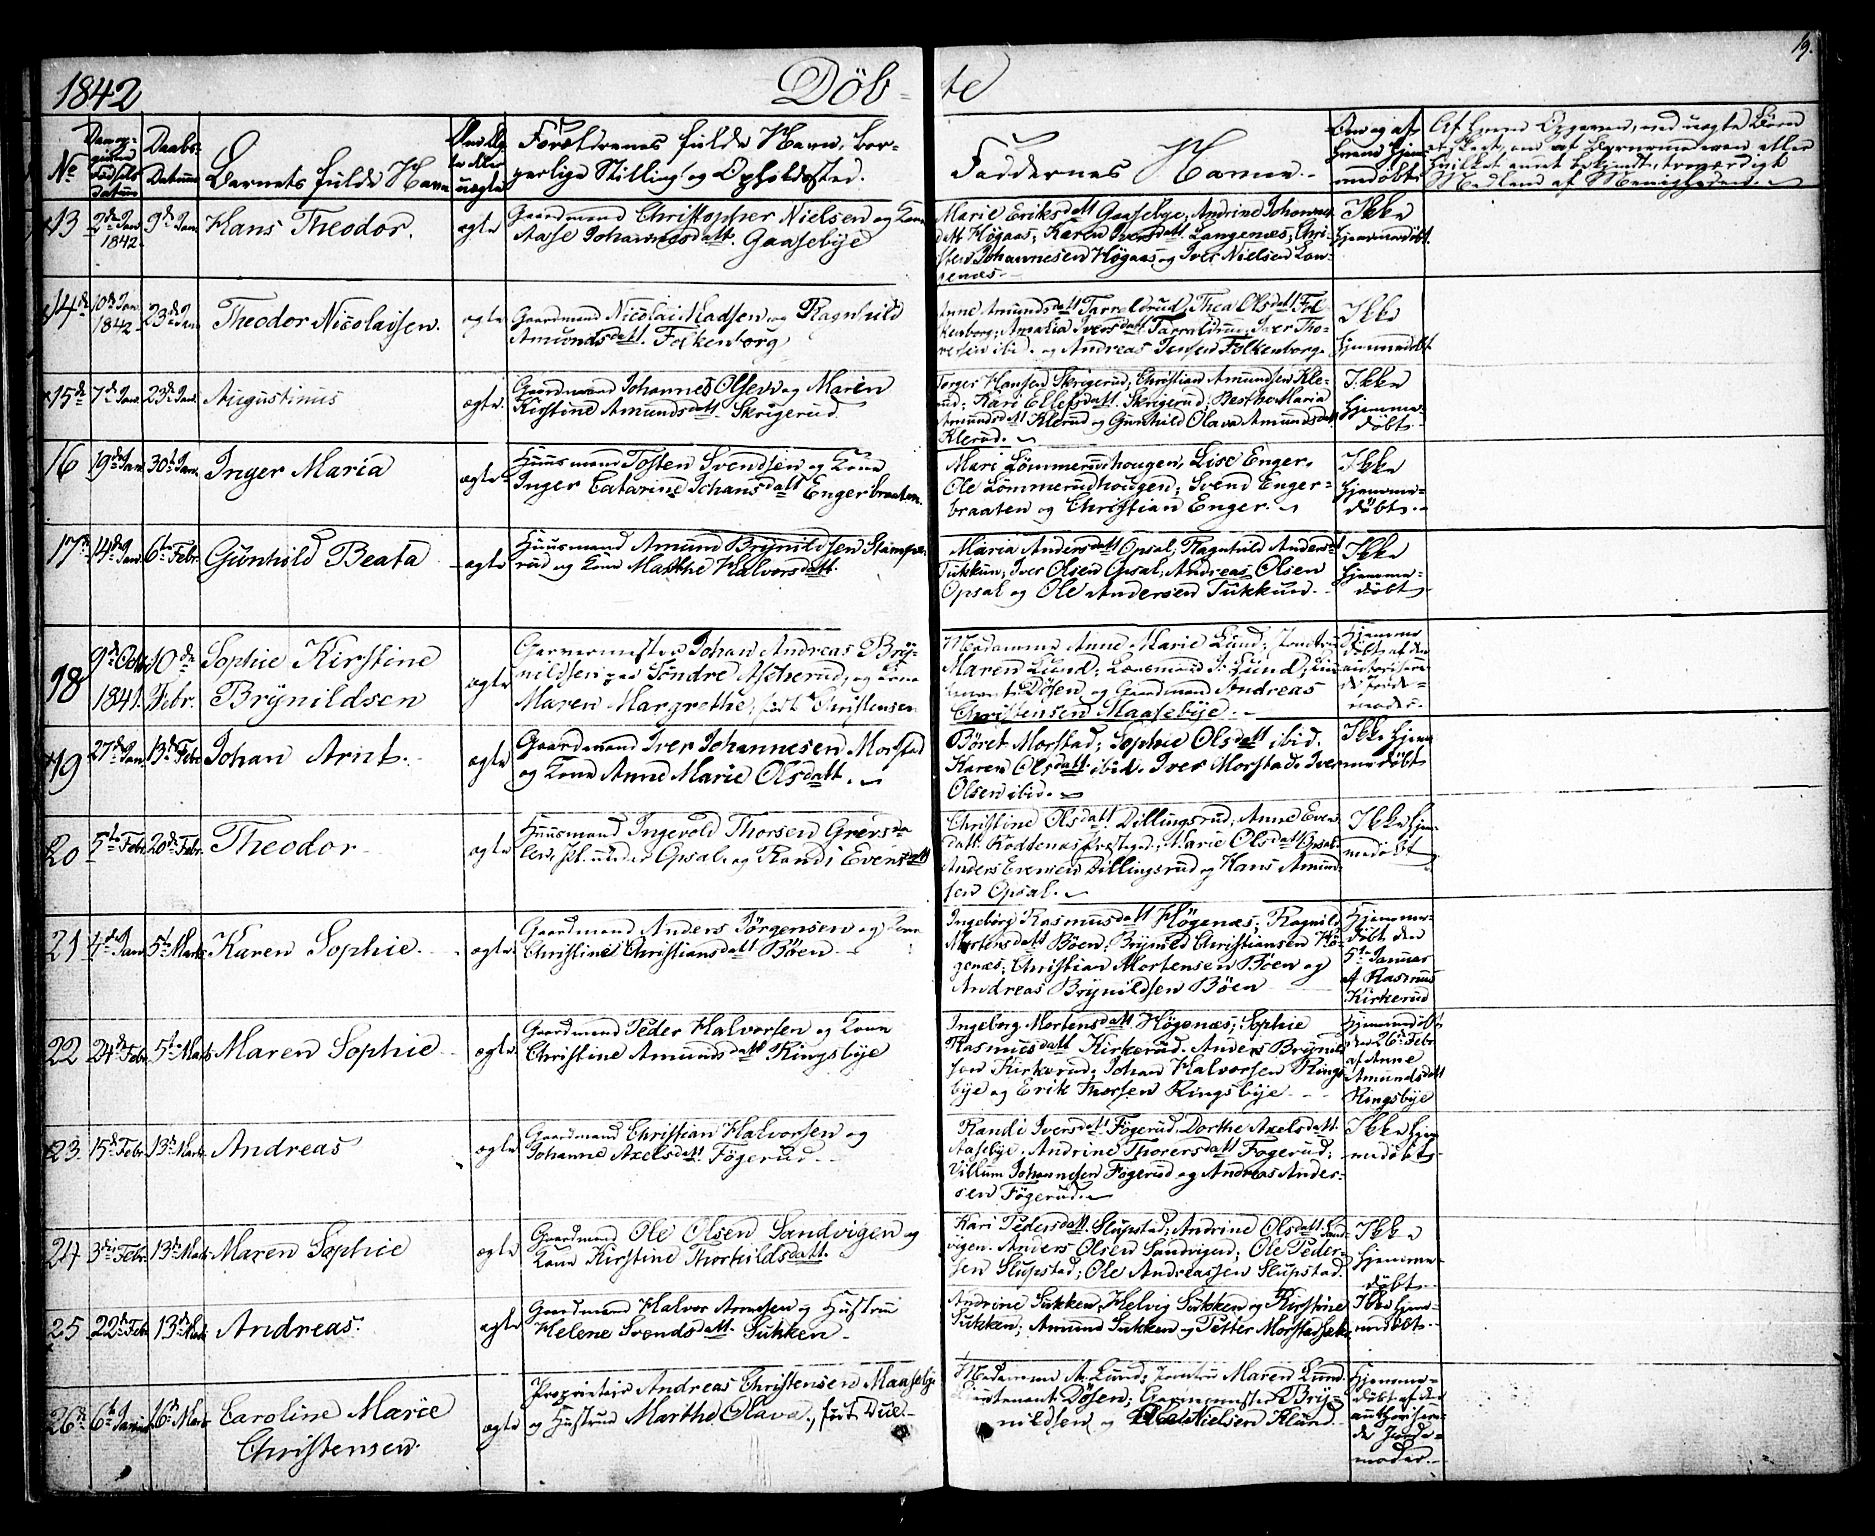 19.
1842 Döb- te
No
Barnets fulde Navn
Forældrenes fulde Navn, bor-
gerlige Stilling og Opholdssted.
Faddernes Navne.
13 2de Jan 1842. 9de Jan Hans Theodor. ægte
Gaardmand Christopher Nielsen og Kone
Aase Johannesdatt. Gaasebÿe
Marie Eriksdatt Gaasebye, Andrine Johannes
datt Högaas; Karen Iversdatt Langenæs; Chri-
sten Johannesen Högaas og Iver Nielsen Lan-
genæs.
Ikke
hjemmedöbt.
14de 10de Jan 1842. 23de Jan Theodor Nicolaisen. ægte
Gaardmand Nicolai Ladsen og Ragnhild
Amundsdatt. Folkenborg
Anne Amundsdatt Tarraldrud; Thea Olsdatt Fol-
kenborg; Amalia Iversdatt Tarraldrud; Iver Tho-
resen ibid. og Andreas Jensen Folkenborg.
Ikke
hjemmedöbt
15de 7de Jan. 23de Jan. Augustinus ægte.
Gaardmand Johannes Olsen og Maren
Kirstine Amundsdatt. Skrigerud.
Torger Hansen Skrigerud; Christian Amundsen Kle-
rud; Kari Ellefsdatt. Skrigerud; Bertha Maria
Amundsdatt Klerud og Gunhild Olava Amundsdatt
Klerud.
Ikke
hjemme-
döbt.
16 19de Jan 30te Jan. Inger Maria ægte
Huusmand Tosten Svendsen og Kone
Inger Catarine Johansdatt Engerbraaten.
Mari Lömmerudhougen, Lise Enger,
Ole Lömmerudhougen; Svend Enger-
braaten og Christian Enger.
Ikke
hjemme-
döbt.
17de 14de Jan. 6te Febr. Gunhild Beata ægte
Huusmand Amund Brÿnildsen Stampe-
rud og Kone Marthe Halvorsdatt.
Maria Andersdatt Opsal; Ragnhild Andersdt
Tukkun; Iver Olsen Opsal; Andreas Olsen
Opsal og Ole Andersen Tukkun.
Ikke
hjemme-
döbt
18 9de Octbr 1841. 10de Febr. Sophie Kirstine
Brÿnildsen ægte
Garvermester Johan Andreas Brÿ-
nildsen paa Söndre Askerud, og Kone
Maren Margrethe, født Christensen
Madamme Anne Marie Lund; Jomfru
Maren Lund; Lensmand J. Lund; Lieu-
tenant Dösen og Gaardmand Andreas
Christensen Maasebÿe.
Hjemme
döbt af den
authorisere-
de Jorde-
moder.
19 27de Jan. 13de Febr Johan Arnt. ægte
Gaardmand Iver Johannesen Morstad
og Kone Anne Marie Olsdatt.
Böret Morstad; Sophie Olsdatt ibid.
Karen Olsdatt ibid. Iver Morstad. Iver
Olsen ibid.
Ikke hjem-
medöbt
20 5te Febr 20de Febr. Theodor ægte
Huusmand Ingevold Thorsen Grevsda-
len, under Opsal og Randi Evensdatt
Christine Olsdatt. Dillingsrud, Anne Evens
datt. Marie Olsdatt Opsal
Anders Evensen Dillingsrud og Hans Amund-
sen Opsal.
Ikke hjem-
medöbt
21 4de Jan 5te Marts Karen Sophie. ægte.
Gaardmand Anders Jörgensen og Kone
Christine Christiansdatt Böen
Ingeborg Rasmusdatt Högenæs; Ragnild
Mortensdatt Böen; Brÿnild Christiansen Hö-
genæs; Christian Mortensen Böen og
Andreas Brÿnildsen Böen
Hjemme-
döbt den
5te Januar
af Rasmus
Kirkerud
22 24de Febr. 5te Marts Maren Sophie ægte
Gaardmand Peder Halvorsen og Kone
Christine Amundsdatt Ringsbÿe
Ingeborg Mortensdatt Högenæs; Sophie
Rasmusdatt Kirkerud. Anders Brÿnild-
sen Kirkerud; Johan Halvorsen Rings-
bÿe og Erik Thorsen Ringsbÿe
Hjemmedöbt
den 26de Febr
af Anne
Amundsdatt
Ringsbÿe
23. 15de Febr. 13de Marts Andreas ægte
Gaardmand Christian Halvorsen og
Johanne Axelsdatt Fögerud.
Randi Iversdatt Fögerud, Dorthe Axelsdatt
Aasebÿe, Andrine Thorersdatt Fögerud;
Villum Johannesen Fögerud og Andreas Ander-
sen Fögerud.
Ikke hjem-
medöbt
24 3die Febr. 13de Marts Maren Sophie ægte
Gaardmand Ole Olsen Sandvigen og
Kone Kirstine Thorkildsdatt.
Kari Pedersdatt. Slupstad; Andrine Olsdatt Sand-
vigen. Anders Olsen Sandvigen; Ole Peder-
sen Slupstad; Ole Andreassen Slupstad.
Ikke
hjemme-
döbt
25 22de Febr 13de Marts Andreas. ægte
Gaardmand Halvor Arnesen og Hustru
Helene Svendsdatt. Sukken
Andrine Sukken, Helvig Sukken og Kirstine
Sukken; Amund Sukken og Petter Morstad
Ikke hjem-
medöbt.
26de 6te Januar 16de Marts Caroline Marie
Christensen. ægte
Proprietair Andreas Christensen Maasebÿe
og Hustrue Marthe Olava, født Due.
Madamme A. Lund; Jomfru Maren Lund.
Lieutenant Dösen; Garvermester Brÿ-
nildsen og Nielsen Klund.
Hjemme-
döbt af den
authorisere-
de Jorde-
moder.